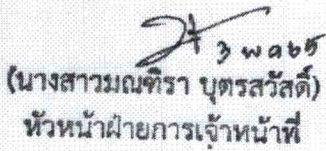 (นางสาวมณฑิรา บุตรสวัสดิ์)
หัวหน้าฝ่ายการเจ้าหน้าที่